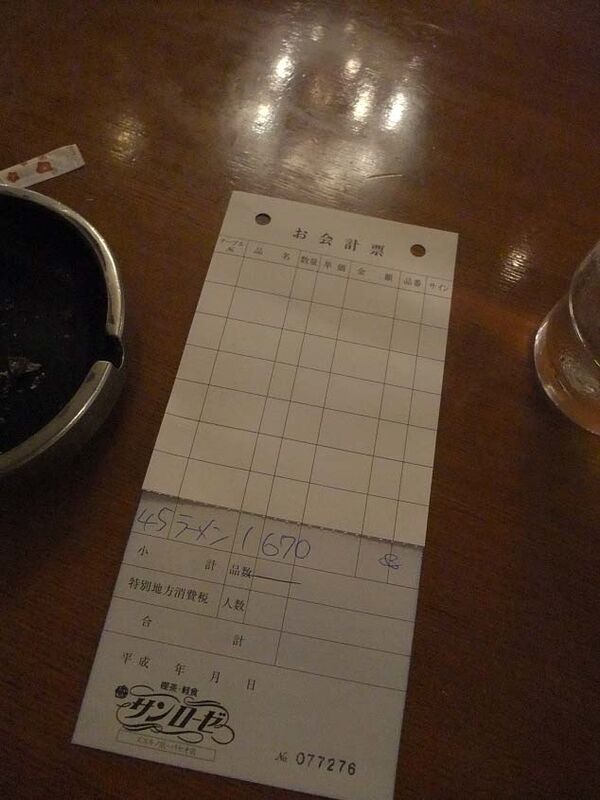 お会計票
テーブルNo. 品名 数量 単価 金額 品番 サイン
45 ラーメン 1 670
小計 品数
特別地方消費税 人数
合計
平成 年 月 日
喫茶・軽食
サンローゼ
No. 077276